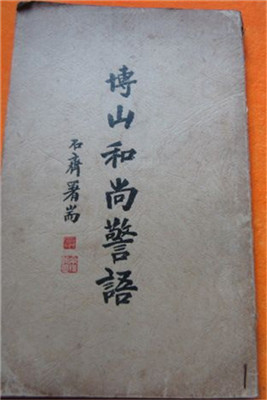 博山和尚警語
石齋署耑